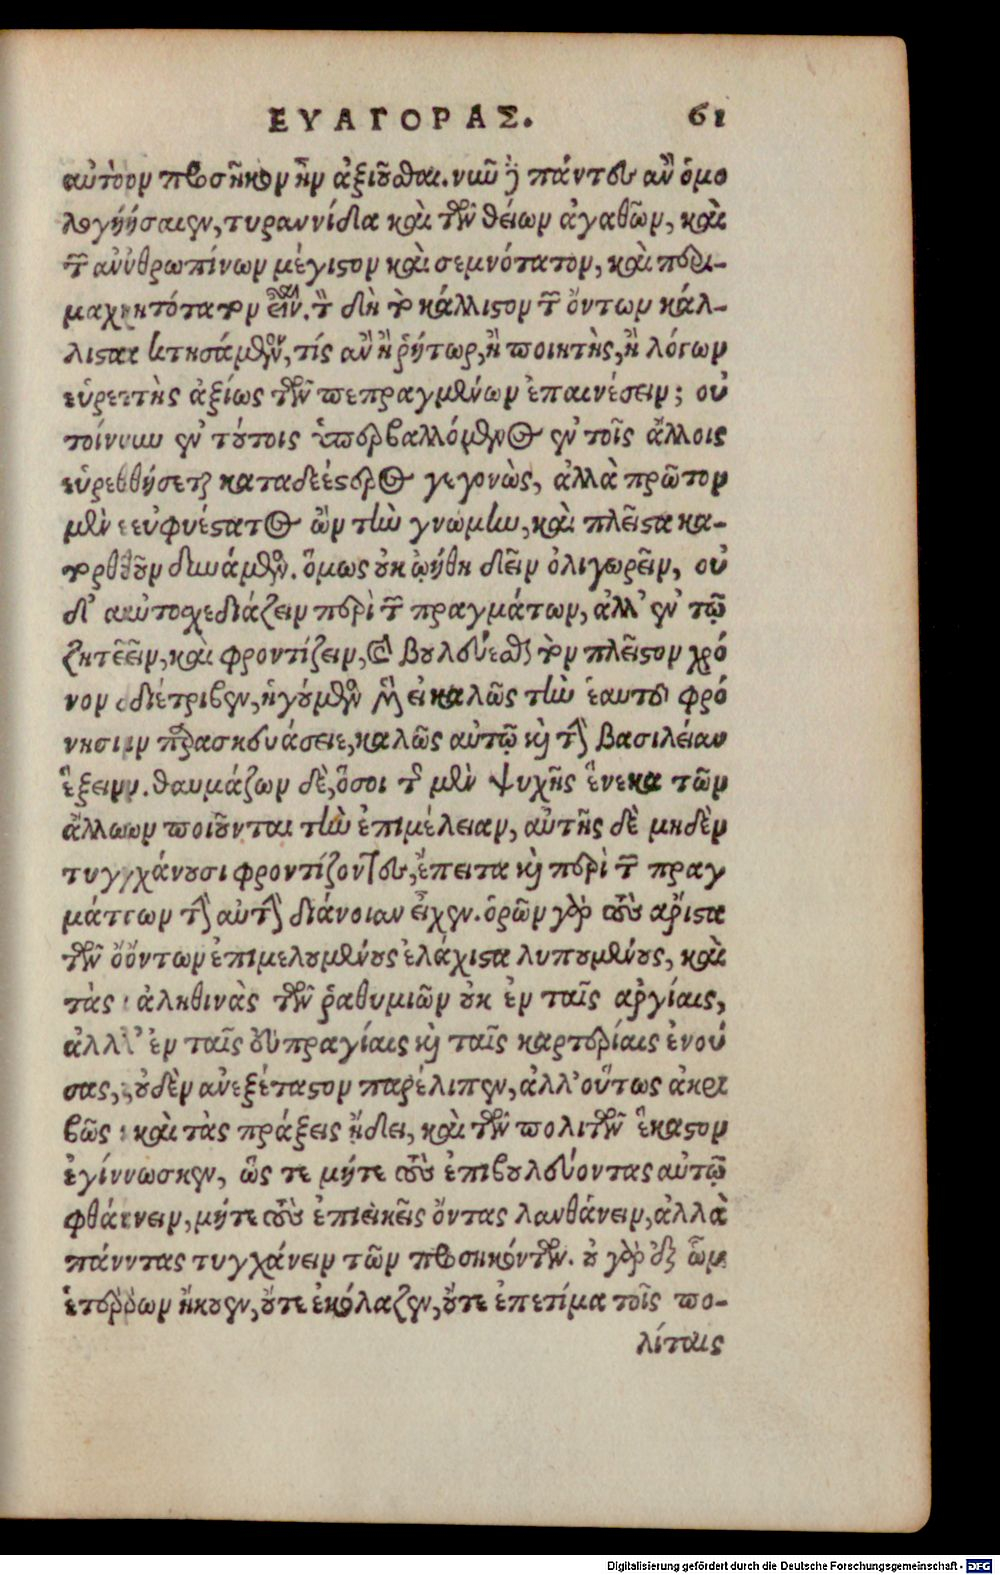 ΕΥΑΓΟΡΑΣ. 61
αὐτὸν προσῆκον ἦν ἀξιοῦσθαι. νῦν δὲ πάντες ἂν ὁμο
λογήσειαν, τυραννίδα καὶ τῶν θείων ἀγαθῶν, καὶ
τῶν ἀνθρωπίνων μέγιστον καὶ σεμνότατον, καὶ περι-
μαχητότατον εἶναι. τὸν δὴ τὸ κάλλιστον τῶν ὄντων κάλ-
λιστα κτησάμενον, τίς ἂν ἢ ῥήτωρ, ἢ ποιητὴς, ἢ λόγων
εὑρετὴς ἀξίως τῶν πεπραγμένων ἐπαινέσειν; οὐ
τοίνυν ἐν τούτοις ὑπερβαλλόμενος ἐν τοῖς ἄλλοις
εὑρεθήσεται καταδεέστερος γεγονὼς, ἀλλὰ πρῶτον
μὲν εὐφυέστατος ὢν τὴν γνώμην, καὶ πλεῖστα κα-
τορθοῦν δυνάμενος. ὅμως οὐκ ᾠήθη δεῖν ὀλιγωρεῖν, οὐ
δ' αὐτοσχεδιάζειν περὶ τῶν πραγμάτων, ἀλλ' ἐν τῷ
ζητεῖν, καὶ φροντίζειν, καὶ βουλεύεσθαι τὸν πλεῖστον χρό
νον διέτριβεν, ἡγούμενος μὲν εἰ καλῶς τὴν ἑαυτοῦ φρό
νησιν παρασκευάσειε, καλῶς αὐτῷ καὶ τὴν βασιλείαν
ἕξειν. θαυμάζων δὲ, ὅσοι τῆς μὲν ψυχῆς ἕνεκα τῶν
ἄλλων ποιοῦνται τὴν ἐπιμέλειαν, αὐτῆς δὲ μηδὲν
τυγχάνουσι φροντίζοντες, ἔπειτα καὶ περὶ τῶν πραγ
μάτων τὴν αὐτὴν διάνοιαν εἶχεν. ὁρῶν γὰρ τοὺς ἄριστα
τῶν ὄντων ἐπιμελουμένους ἐλάχιστα λυπουμένους, καὶ
τὰς ἀληθινὰς τῶν ῥαθυμιῶν οὐκ ἐν ταῖς ἀργίαις,
ἀλλ' ἐν ταῖς εὐπραγίαις καὶ ταῖς καρτερίαις ἐνού
σας, οὐδὲν ἀνεξέταστον παρέλιπεν, ἀλλ' οὕτως ἀκρι
βῶς καὶ τὰς πράξεις ᾔδει, καὶ τῶν πολιτῶν ἕκαστον
ἐγίνωσκεν, ὥς τε μήτε τοὺς ἐπιβουλεύοντας αὐτῷ
φθάνειν, μήτε τοὺς ἐπιεικεῖς ὄντας λανθάνειν, ἀλλὰ
πάντας τυγχάνειν τῶν προσηκόντων. οὐ γὰρ ἐξ ὧν
ἑτέρων ἤκουεν, οὔτε ἐκόλαζεν, οὔτε ἐπετίμα τοῖς πο-
λίταις
Digitalisierung gefördert durch die Deutsche Forschungsgemeinschaft - DFG